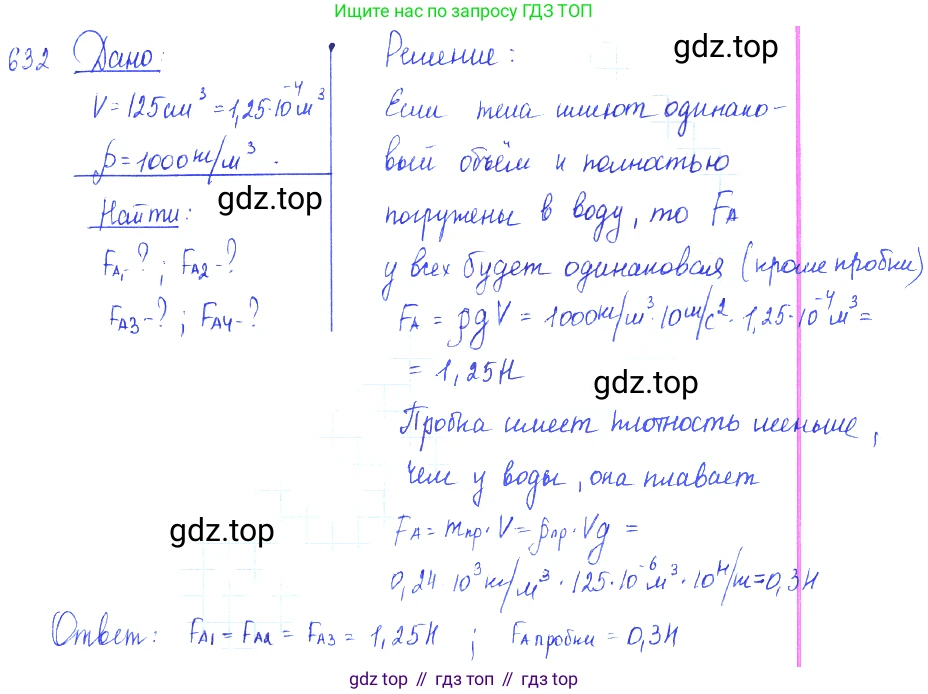 Ищите нас по запросу ГДЗ ТОП
632 Дано:
V = 125 см³ = 1,25·10⁻⁴ м³
ρ = 1000 кг/м³.
Найти:
F_A1 - ? ; F_A2 - ?
F_A3 - ? ; F_A4 - ?
Решение:
gdz.top
Если тела имеют одинако-
вый объём и полностью
gdz.top
погружены в воду, то F_A
у всех будет одинаковая (кроме пробки)
F_A = ρgV = 1000 кг/м³·10 м/с²·1,25·10⁻⁴ м³ =
= 1,25 Н
gdz.top
Пробка имеет плотность меньше,
чем у воды, она плавает
gdz.top
F_A = m_пр·V = ρ_пр·Vg =
0,24 10³ кг/м³ · 125·10⁻⁶ м³ · 10 Н/м = 0,3 Н
Ответ: F_A1 = F_A2 = F_A3 = 1,25 Н ; F_A пробки = 0,3 Н
gdz top // гдз топ // gdz top